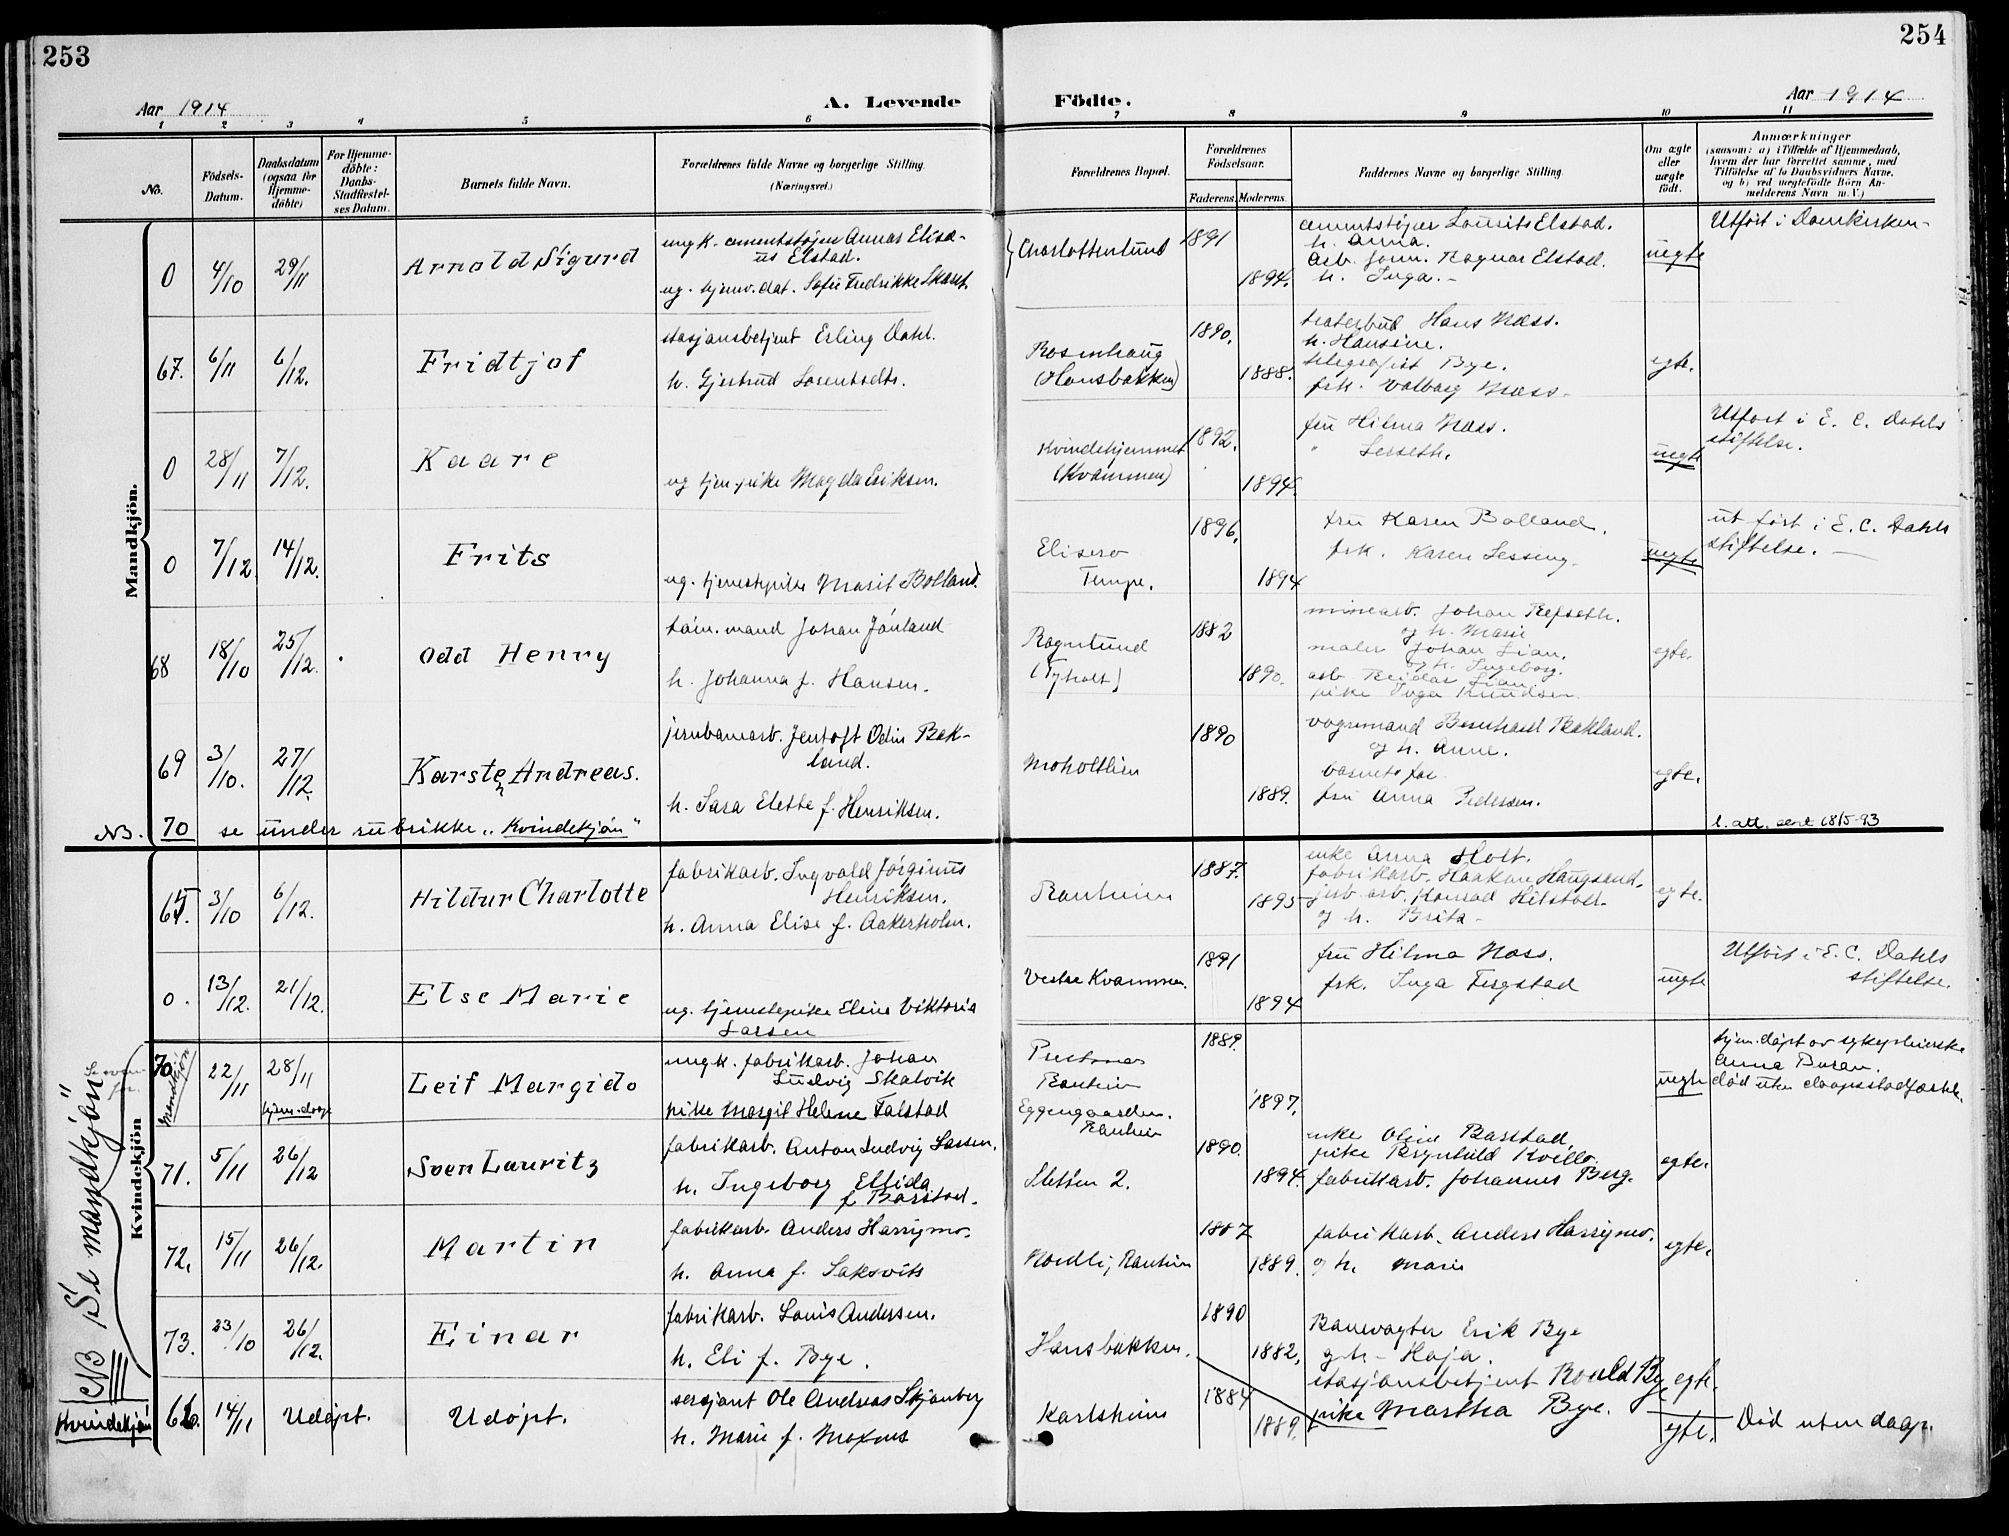 253
254
Aar 1914
A. Levende
Födte.
Aar 1914
1 2 3 4 5 6 7 8 9 10 11
No.
Födsels-Datum.
Daabsdatum (ogsaa for Hjemme-döbte)
For Hjemme-döbte: Daabs-Stadfæstel-ses Datum.
Barnets fulde Navn.
Forældrenes fulde Navne og borgerlige Stilling.
(Næringsvei.)
Forældrenes Bopæl.
Forældrenes Födselsaar.
Faderens. Moderens.
Faddernes Navne og borgerlige Stilling.
Om ægte eller uægte födt.
Anmærkninger
(saasom: a) i Tilfælde af Hjemmedaab,
hvem der har forrettet samme, med
Tilföielse af to Daabsvidners Navne,
og b) ved uægtefödte Börn An-
melderens Navn m. V.)
Mandkjön.
0 4/10 29/11 Arnold Sigurd
ungk. cementstøper Annar Elisæ-
us Elstad.
ug. hjemv. dat. Sofie Fredrikke
Charlottenlund 1891 1894.
cementstøper Laurits Elstad.
h. Anna.
Arb. Ragnar Elstad.
h. Inga.
uegte
Utført i Domkirken
67. 6/11 6/12. Fridtjof
stasjonsbetjent Erling Dahl.
h. Gjertrud
Rosenhaug
(Hansbakken)
1890. 1888.
teaterbud Hans Næss.
h. Hansine.
telegrafist Bye.
frk. Valborg Næss.
egte.
0 28/11 7/12. Kaare
ug tjen.pike Magda Eriksen.
Kvindehjemmet
(Kvammen)
1892. 1894.
fru Hilma Næss.
" Lesseth.
uegte
Utført i E. C. Dahls
stiftelse.
0 7/12. 14/12. Frits
ug. tjenestepike Marit Bolland.
Elisero
Tempe.
1896. 1894
fru Karen Bolland.
frk. Karen
uegte
utført i E. C. Dahls
stiftelse.
68 18/10 25/12. Odd Henry
mand Johan
h. Johanna f. Hansen.
Ragnlund
(Tyholt)
1882 1890.
minearb. Johan Refseth.
og h. Marie
maler Johan Lian.
og h. Ingeborg.
arb. Reidar Lian
pike Inga Knudsen.
egte.
69 3/10. 27/12. Karsten Andreas.
jernbanearb. Jentoft Odin Bek-
land.
h. Sara Elette f. Henriksen.
Moholtlien
1890 1889.
vognmand Bernhard Bakland.
og h. Anne.
barnets far
fru Anna Pedersen.
egte.
NB. 70 se under rubrikke "Kvindekjön"
l. att. sent 18/5-93
Kvindekjön
65. 3/10 6/12. Hildur Charlotte
fabrikarb. Ingvald Jørginius
Henriksen.
h. Anna Elise f. Aakerholm.
Ranheim
1887. 1895
enke Anna Holt.
fabrikarb. Haakon Haugsand.
jerb. arb. Konrad Hilstad.
og h. Brita
egte.
0. 13/12. 21/12. Else Marie
ug. tjenestepike Eline Viktoria
Larsen
Vestre Kvammen.
1891 1894
fru Hilma Næss.
frk. Inga Fergstad
uegte
Utført i E. C. Dahls
stiftelse.
70 Mandkjön
Se ovenfor.
22/11 28/11 hjem.daap Leif Margido
ungk. fabrikarb. Johan
Ludvig Skalvik
pike Margit Helene Falstad
Prestmos
Ranheim
Eggengaarden.
Ranheim
1889. 1897.
uegte
hjem.døpt av sykepleierske
Anna Buran.
død uten daapsstadfæstel.
71. 5/11 26/12 Sven Lauritz
fabrikarb. Anton Ludvig Larsen.
h. Ingeborg Ellida
f. Barstad.
Sletten 2.
1890. 1894.
enke Oline Barstad.
pike Brynhild Kvello.
fabrikkarb. Johannes Berg.
egte.
72. 15/11 26/12. Martin
fabrikarb. Anders Harrymo.
h. Anna f. Saksvik
Nordli, Ranheim
1887 1889.
fabrikarb. Anders Harrymo.
og h. Marie
egte.
73. 23/10 26/12. Einar
fabrikarb. Louis Andersen.
h. Eli f. Bye.
Hansbakken.
1890 1882.
Banevogter Erik Bye
og h. - Haja.
stasjonsbetjent Roald Bye
pike Martha Bye.
egte.
NB Se mandkjön"
Kvindekjön
66. 14/11 Udöpt. Udöpt.
sersjant Ole Andreas Skjönberg
h. Marie f. Moxnes
Karlsheim
1884 1889.
egte.
Død uten daap.